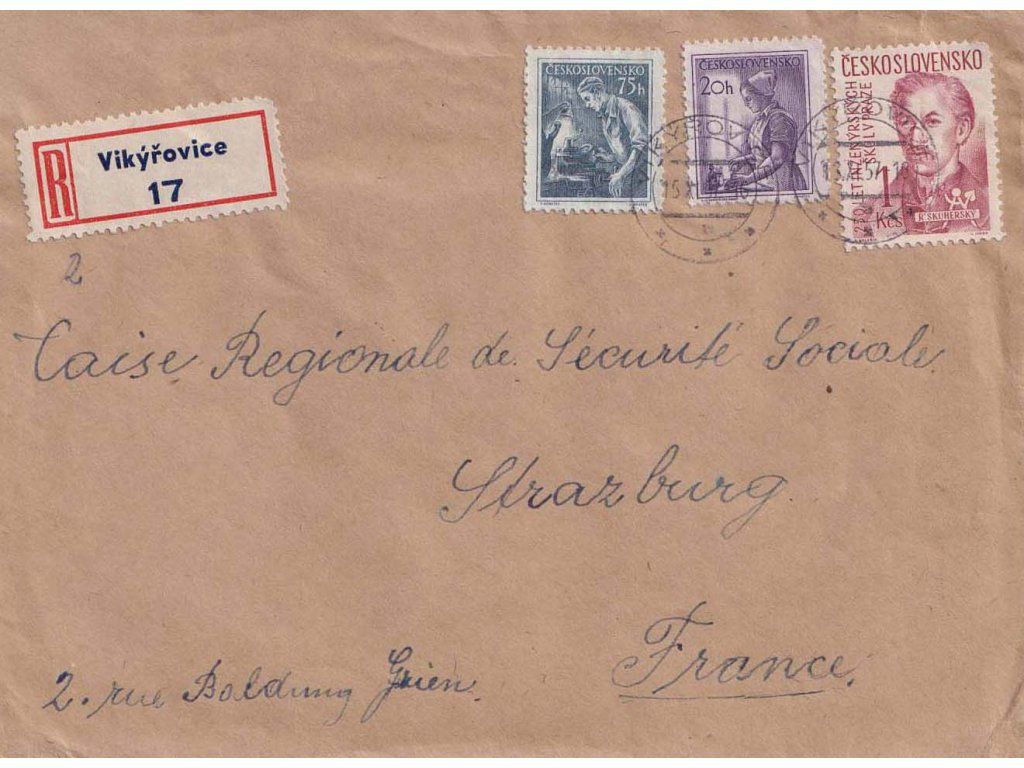 R Vikýřovice
17
ČESKOSLOVENSKO
75h
ČESKOSLOVENSKO
20h
ČESKOSLOVENSKO
ŠKOL V PRAZE
1 Kčs
R. SKUHERSKÝ
2
Caise Regionale de Sécurité Sociale.
Strazburg.
France.
2. rue Baldung Grien.